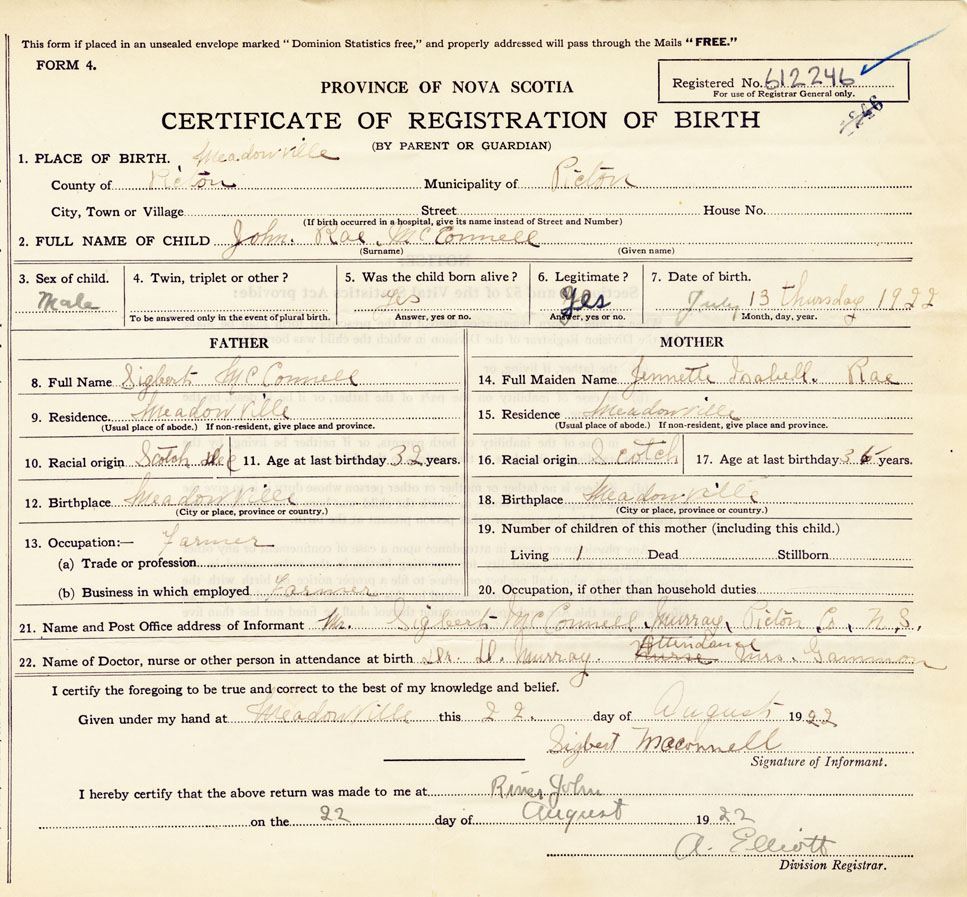 This form if placed in an unsealed envelope marked "Dominion Statistics free," and properly addressed will pass through the Mails "FREE."
FORM 4.
Registered No. 612246
For use of Registrar General only.
PROVINCE OF NOVA SCOTIA
CERTIFICATE OF REGISTRATION OF BIRTH
(BY PARENT OR GUARDIAN)
1. PLACE OF BIRTH. Meadowville
County of Picton Municipality of Picton
City, Town or Village Street House No.
(If birth occurred in a hospital, give its name instead of Street and Number)
2. FULL NAME OF CHILD John. Rae. McConnell
(Surname) (Given name)
3. Sex of child. 4. Twin, triplet or other? 5. Was the child born alive? 6. Legitimate? 7. Date of birth.
Male Yes Yes July 13 Thursday 1922
To be answered only in the event of plural birth. Answer, yes or no. Answer, yes or no. Month, day, year.
FATHER
8. Full Name Sigbert McConnell
9. Residence. Meadowville
(Usual place of abode.) If non-resident, give place and province.
10. Racial origin Scotch 11. Age at last birthday 32 years.
12. Birthplace Meadowville
(City or place, province or country.)
13. Occupation:— Farmer
(a) Trade or profession
(b) Business in which employed Farmer
MOTHER
14. Full Maiden Name Jennette Isabell. Rae
15. Residence Meadowville
(Usual place of abode.) If non-resident, give place and province.
16. Racial origin Scotch 17. Age at last birthday years.
18. Birthplace Meadowville
(City or place, province or country.)
19. Number of children of this mother (including this child.)
Living 1 Dead Stillborn
20. Occupation, if other than household duties
21. Name and Post Office address of Informant Mr. Sigbert McConnell, Murray, Picton Co, N.S.
22. Name of Doctor, nurse or other person in attendance at birth Dr. D. Murray. Attendance Nurse Mrs. Gammon
I certify the foregoing to be true and correct to the best of my knowledge and belief.
Given under my hand at Meadowville this 22. day of August 1922
Sigbert Maconnell
Signature of Informant.
I hereby certify that the above return was made to me at River John
on the 22 day of August 1922
A. Elliott
Division Registrar.